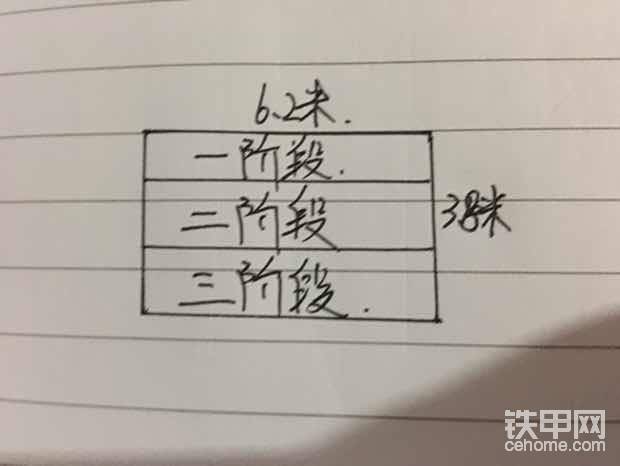 6.2米.
一阶段.
二阶段
38米
三阶段.
铁甲网
cehome.com